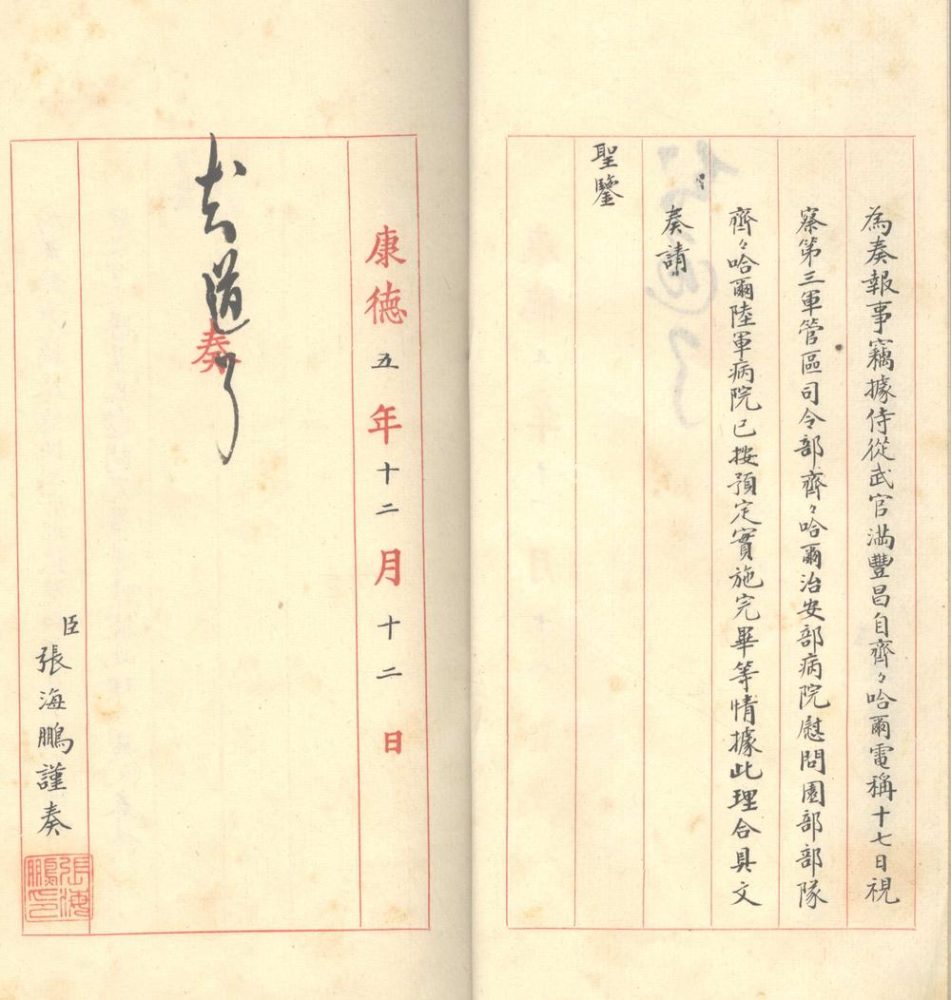 為奏報事竊據侍從武官満豐昌自齊々哈爾電稱十七日視
察第三軍管區司令部齊々哈爾治安部病院慰問園部部隊
齊々哈爾陸軍病院已按預定實施完畢等情據此理合具文
奏請
聖鑒
康徳五年十二月十二日
奏
知道了
臣張海鵬謹奏
張海鵬印